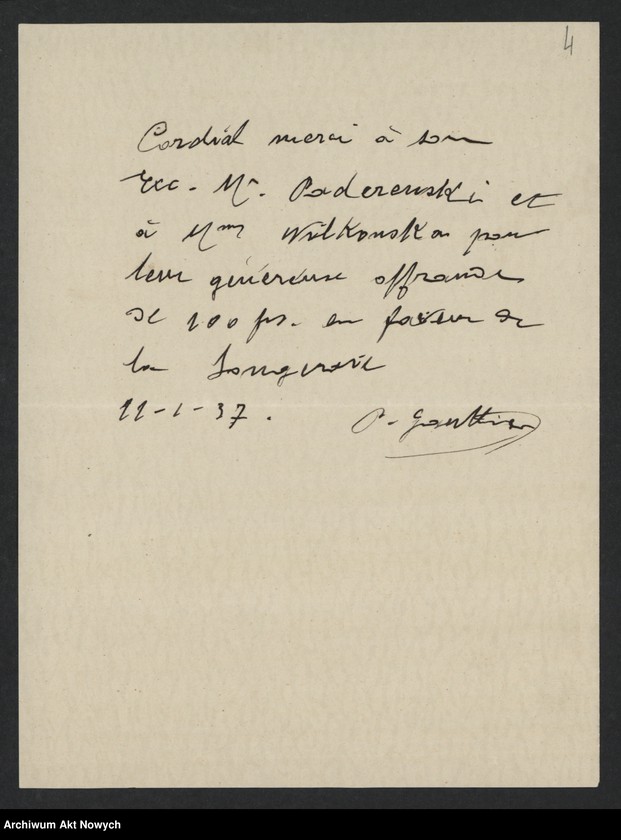 4
Cordial merci à son
Exc. Mr. Paderewski et
à Mme Wilkonska pour
leur généreuse offrande
de 100 frs. en faveur de
la Longeraie
11-1-37.
P. Gauthier
Archiwum Akt Nowych